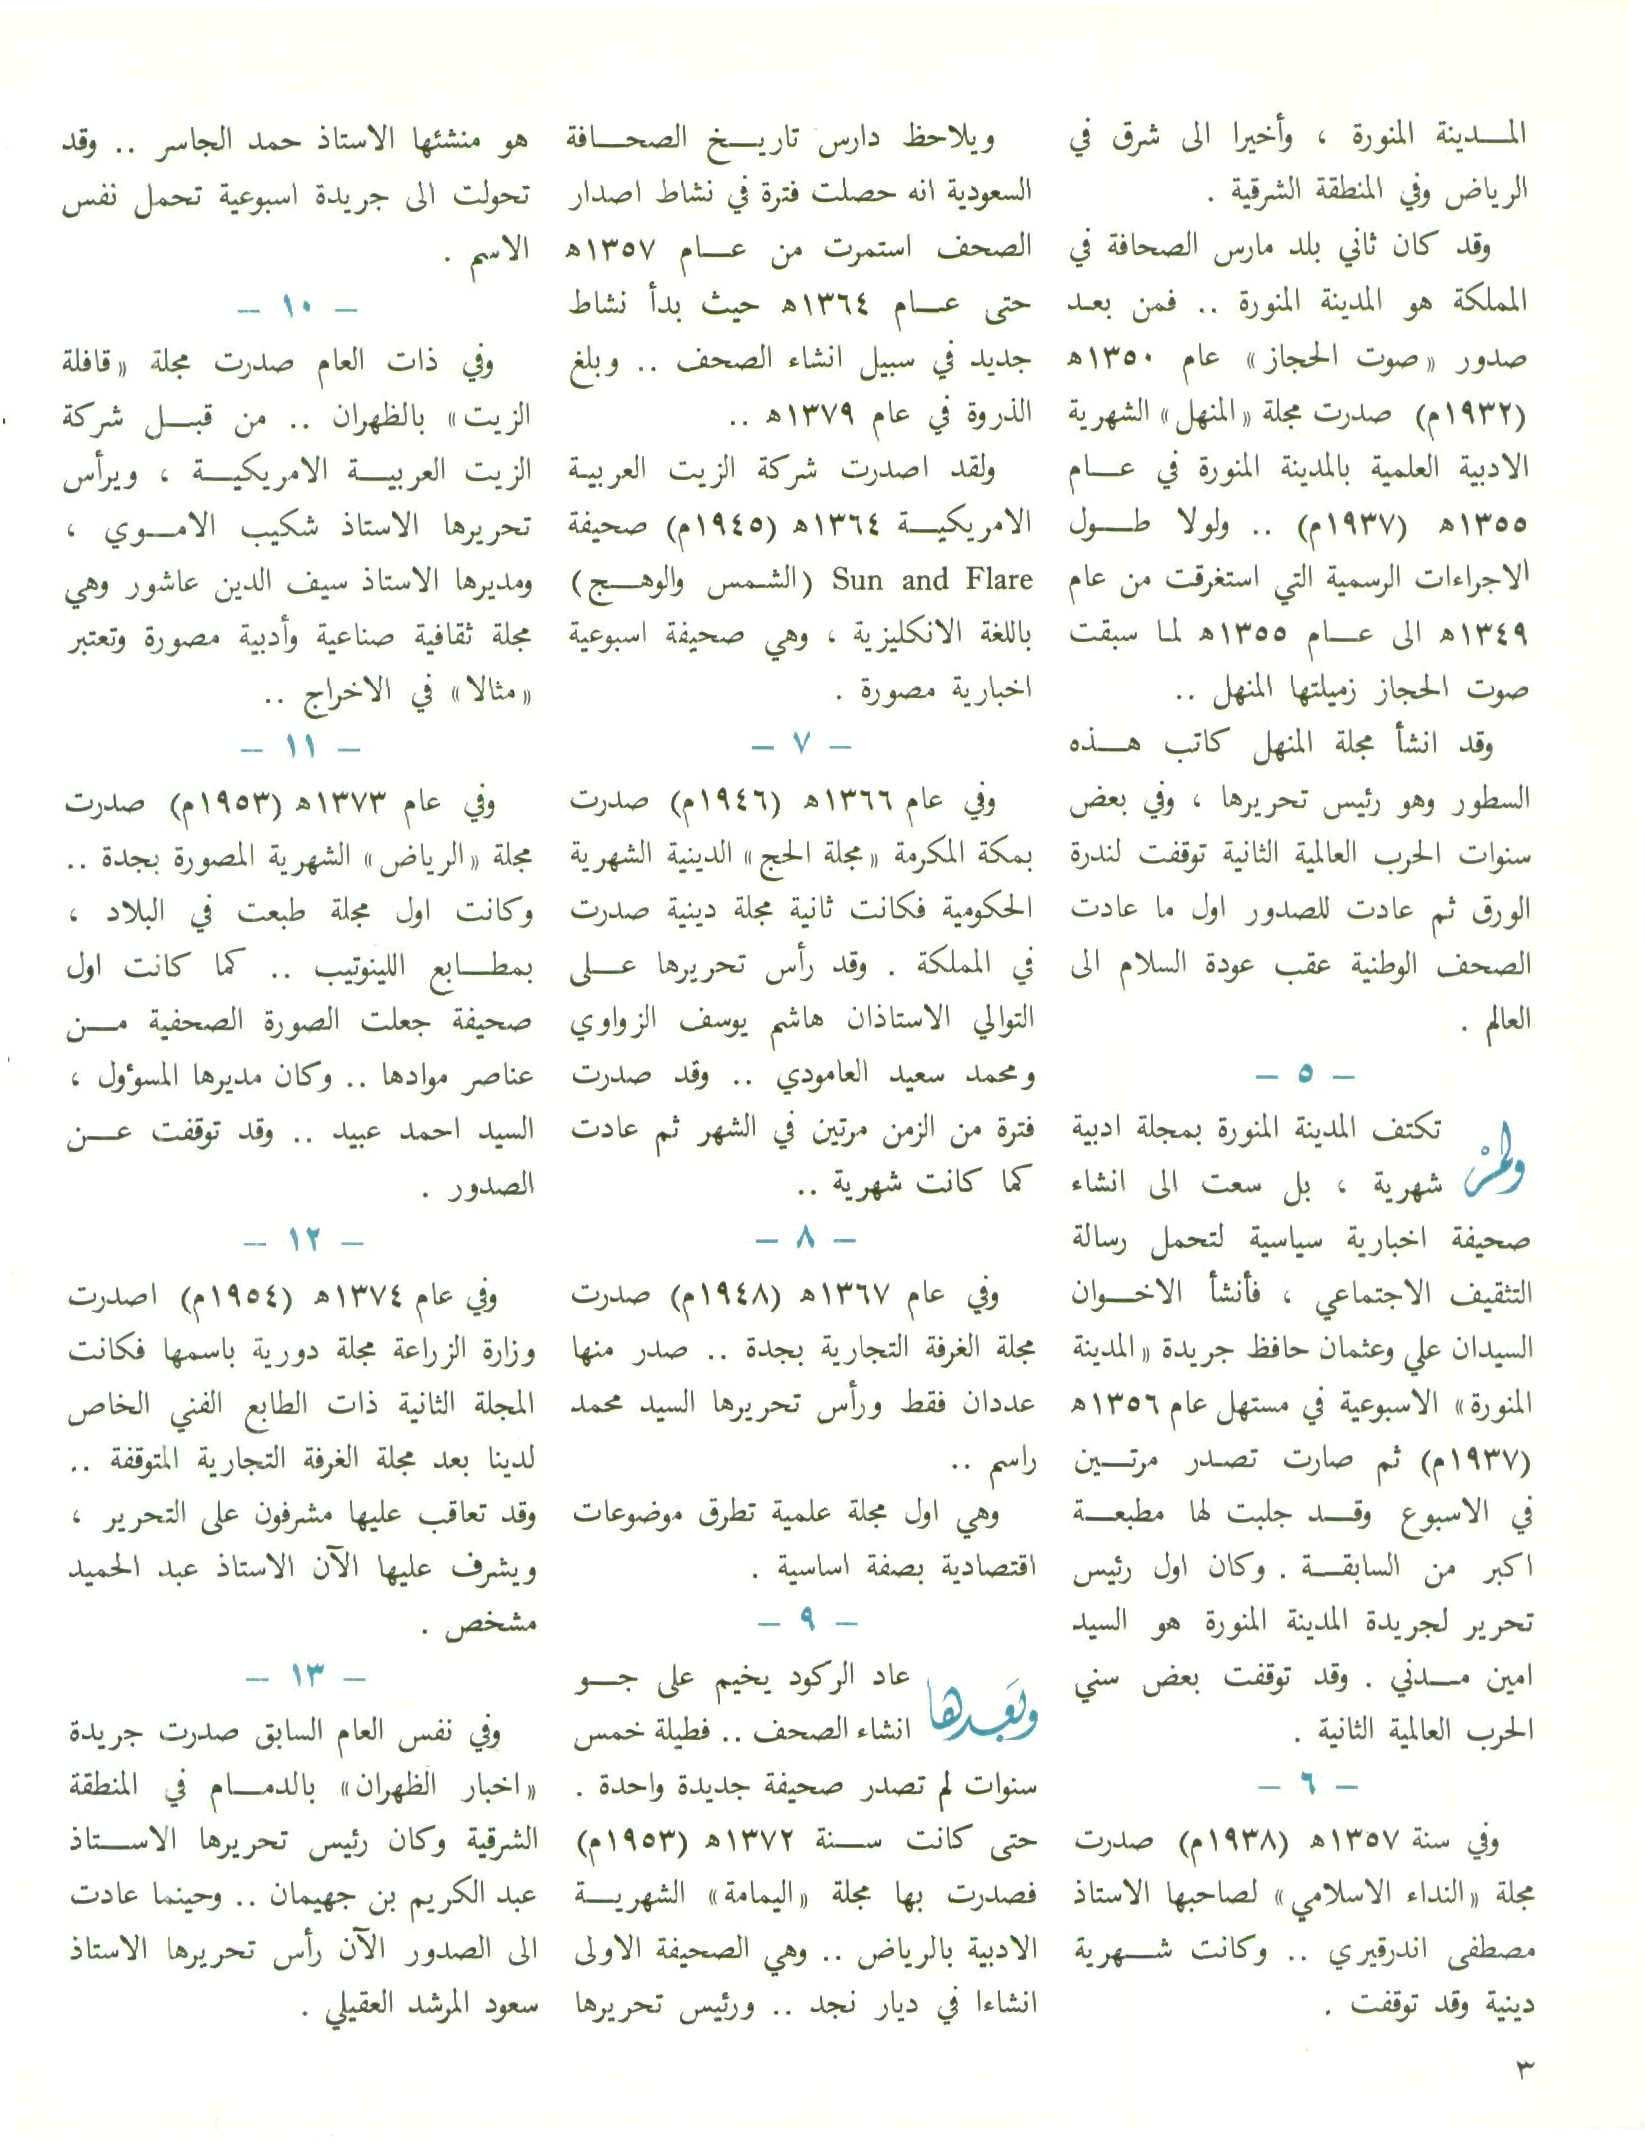 المـدينة المنورة ، وأخيرا الى شرق في
الرياض وفي المنطقة الشرقية .
وقد كان ثاني بلد مارس الصحافة في
المملكة هو المدينة المنورة .. فمن بعد
صدور «صوت الحجاز» عام ١٣٥٠ھ
(١٩٣٢م) صدرت مجلة «المنهل» الشهرية
الادبية العلمية بالمدينة المنورة في عـام
١٣٥٥ھ (١٩٣٧م) .. ولولا طـول
الاجراءات الرسمية التي استغرقت من عام
١٣٤٩ھ الى عـام ١٣٥٥ھ لما سبقت
صوت الحجاز زميلتها المنهل ..
وقد انشأ مجلة المنهل كاتب هـذه
السطور وهو رئيس تحريرها ، وفي بعض
سنوات الحرب العالمية الثانية توقفت لندرة
الورق ثم عادت للصدور اول ما عادت
الصحف الوطنية عقب عودة السلام الى
العالم .
– ٥ –
ولم تكتف المدينة المنورة بمجلة ادبية
شهرية ، بل سعت الى انشاء
صحيفة اخبارية سياسية لتحمل رسالة
التثقيف الاجتماعي ، فأنشأ الاخـوان
السيدان علي وعثمان حافظ جريدة «المدينة
المنورة» الاسبوعية في مستهل عام ١٣٥٦ھ
(١٩٣٧م) ثم صارت تصدر مرتـين
في الاسبوع وقـد جلبت لها مطبعـة
اكبر من السابقـة . وكان اول رئيس
تحرير لجريدة المدينة المنورة هو السيد
امين مـدني . وقد توقفت بعض سني
الحرب العالمية الثانية .
– ٦ –
وفي سنة ١٣٥٧ھ (١٩٣٨م) صدرت
مجلة «النداء الاسلامي» لصاحبها الاستاذ
مصطفى اندرقيري .. وكانت شـهرية
دينية وقد توقفت .
ويلاحظ دارس تاريـخ الصحـافة
السعودية انه حصلت فترة في نشاط اصدار
الصحف استمرت من عـام ١٣٥٧ھ
حتى عـام ١٣٦٤ھ حيث بدأ نشاط
جديد في سبيل انشاء الصحف .. وبلغ
الذروة في عام ١٣٧٩ھ ..
ولقد اصدرت شركة الزيت العربية
الامريكيـة ١٣٦٤ھ (١٩٤٥م) صحيفة
Sun and Flare (الشمس والوهـج)
باللغة الانكليزية ، وهي صحيفة اسبوعية
اخبارية مصورة .
– ٧ –
وفي عام ١٣٦٦ھ (١٩٤٦م) صدرت
بمكة المكرمة «مجلة الحج» الدينية الشهرية
الحكومية فكانت ثانية مجلة دينية صدرت
في المملكة . وقد رأس تحريرها عـلى
التوالي الاستاذان هاشم يوسف الزواوي
ومحمد سعيد العامودي .. وقد صدرت
فترة من الزمن مرتين في الشهر ثم عادت
كما كانت شهرية ..
– ٨ –
وفي عام ١٣٦٧ھ (١٩٤٨م) صدرت
مجلة الغرفة التجارية بجدة .. صدر منها
عددان فقط ورأس تحريرها السيد محمد
راسم ..
وهي اول مجلة علمية تطرق موضوعات
اقتصادية بصفة اساسية .
– ٩ –
وبعدها عاد الركود يخيم على جـو
انشاء الصحف .. فطيلة خمس
سنوات لم تصدر صحيفة جديدة واحدة .
حتى كانت سـنة ١٣٧٢ھ (١٩٥٣م)
فصدرت بها مجلة «اليمامة» الشهريـة
الادبية بالرياض .. وهي الصحيفة الاولى
انشاءا في ديار نجد .. ورئيس تحريرها
هو منشئها الاستاذ حمد الجاسر .. وقد
تحولت الى جريدة اسبوعية تحمل نفس
الاسم .
– ١٠ –
وفي ذات العام صدرت مجلة «قافلة
الزيت» بالظهران .. من قبـل شركة
الزيت العربيـة الامريكيـة ، ويرأس
تحريرها الاستاذ شكيب الامـوي ،
ومديرها الاستاذ سيف الدين عاشور وهي
مجلة ثقافية صناعية وأدبية مصورة وتعتبر
«مثالا» في الاخراج ..
– ١١ –
وفي عام ١٣٧٣ھ (١٩٥٣م) صدرت
مجلة «الرياض» الشهرية المصورة بجدة ..
وكانت اول مجلة طبعت في البلاد ،
بمطـابع اللينوتيب .. كما كانت اول
صحيفة جعلت الصورة الصحفية مـن
عناصر موادها .. وكان مديرها المسوؤول ،
السيد احمد عبيد .. وقد توقفت عـن
الصدور .
– ١٢ –
وفي عام ١٣٧٤ھ (١٩٥٤م) اصدرت
وزارة الزراعة مجلة دورية باسمها فكانت
المجلة الثانية ذات الطابع الفني الخاص
لدينا بعد مجلة الغرفة التجارية المتوقفة ..
وقد تعاقب عليها مشرفون على التحرير ،
ويشرف عليها الآن الاستاذ عبد الحميد
مشخص .
– ١٣ –
وفي نفس العام السابق صدرت جريدة
«اخبار الظهران» بالدمـام في المنطقة
الشرقية وكان رئيس تحريرها الاسـتاذ
عبد الكريم بن جهيمان .. وحينما عادت
الى الصدور الآن رأس تحريرها الاستاذ
سعود المرشد العقيلي .
٣